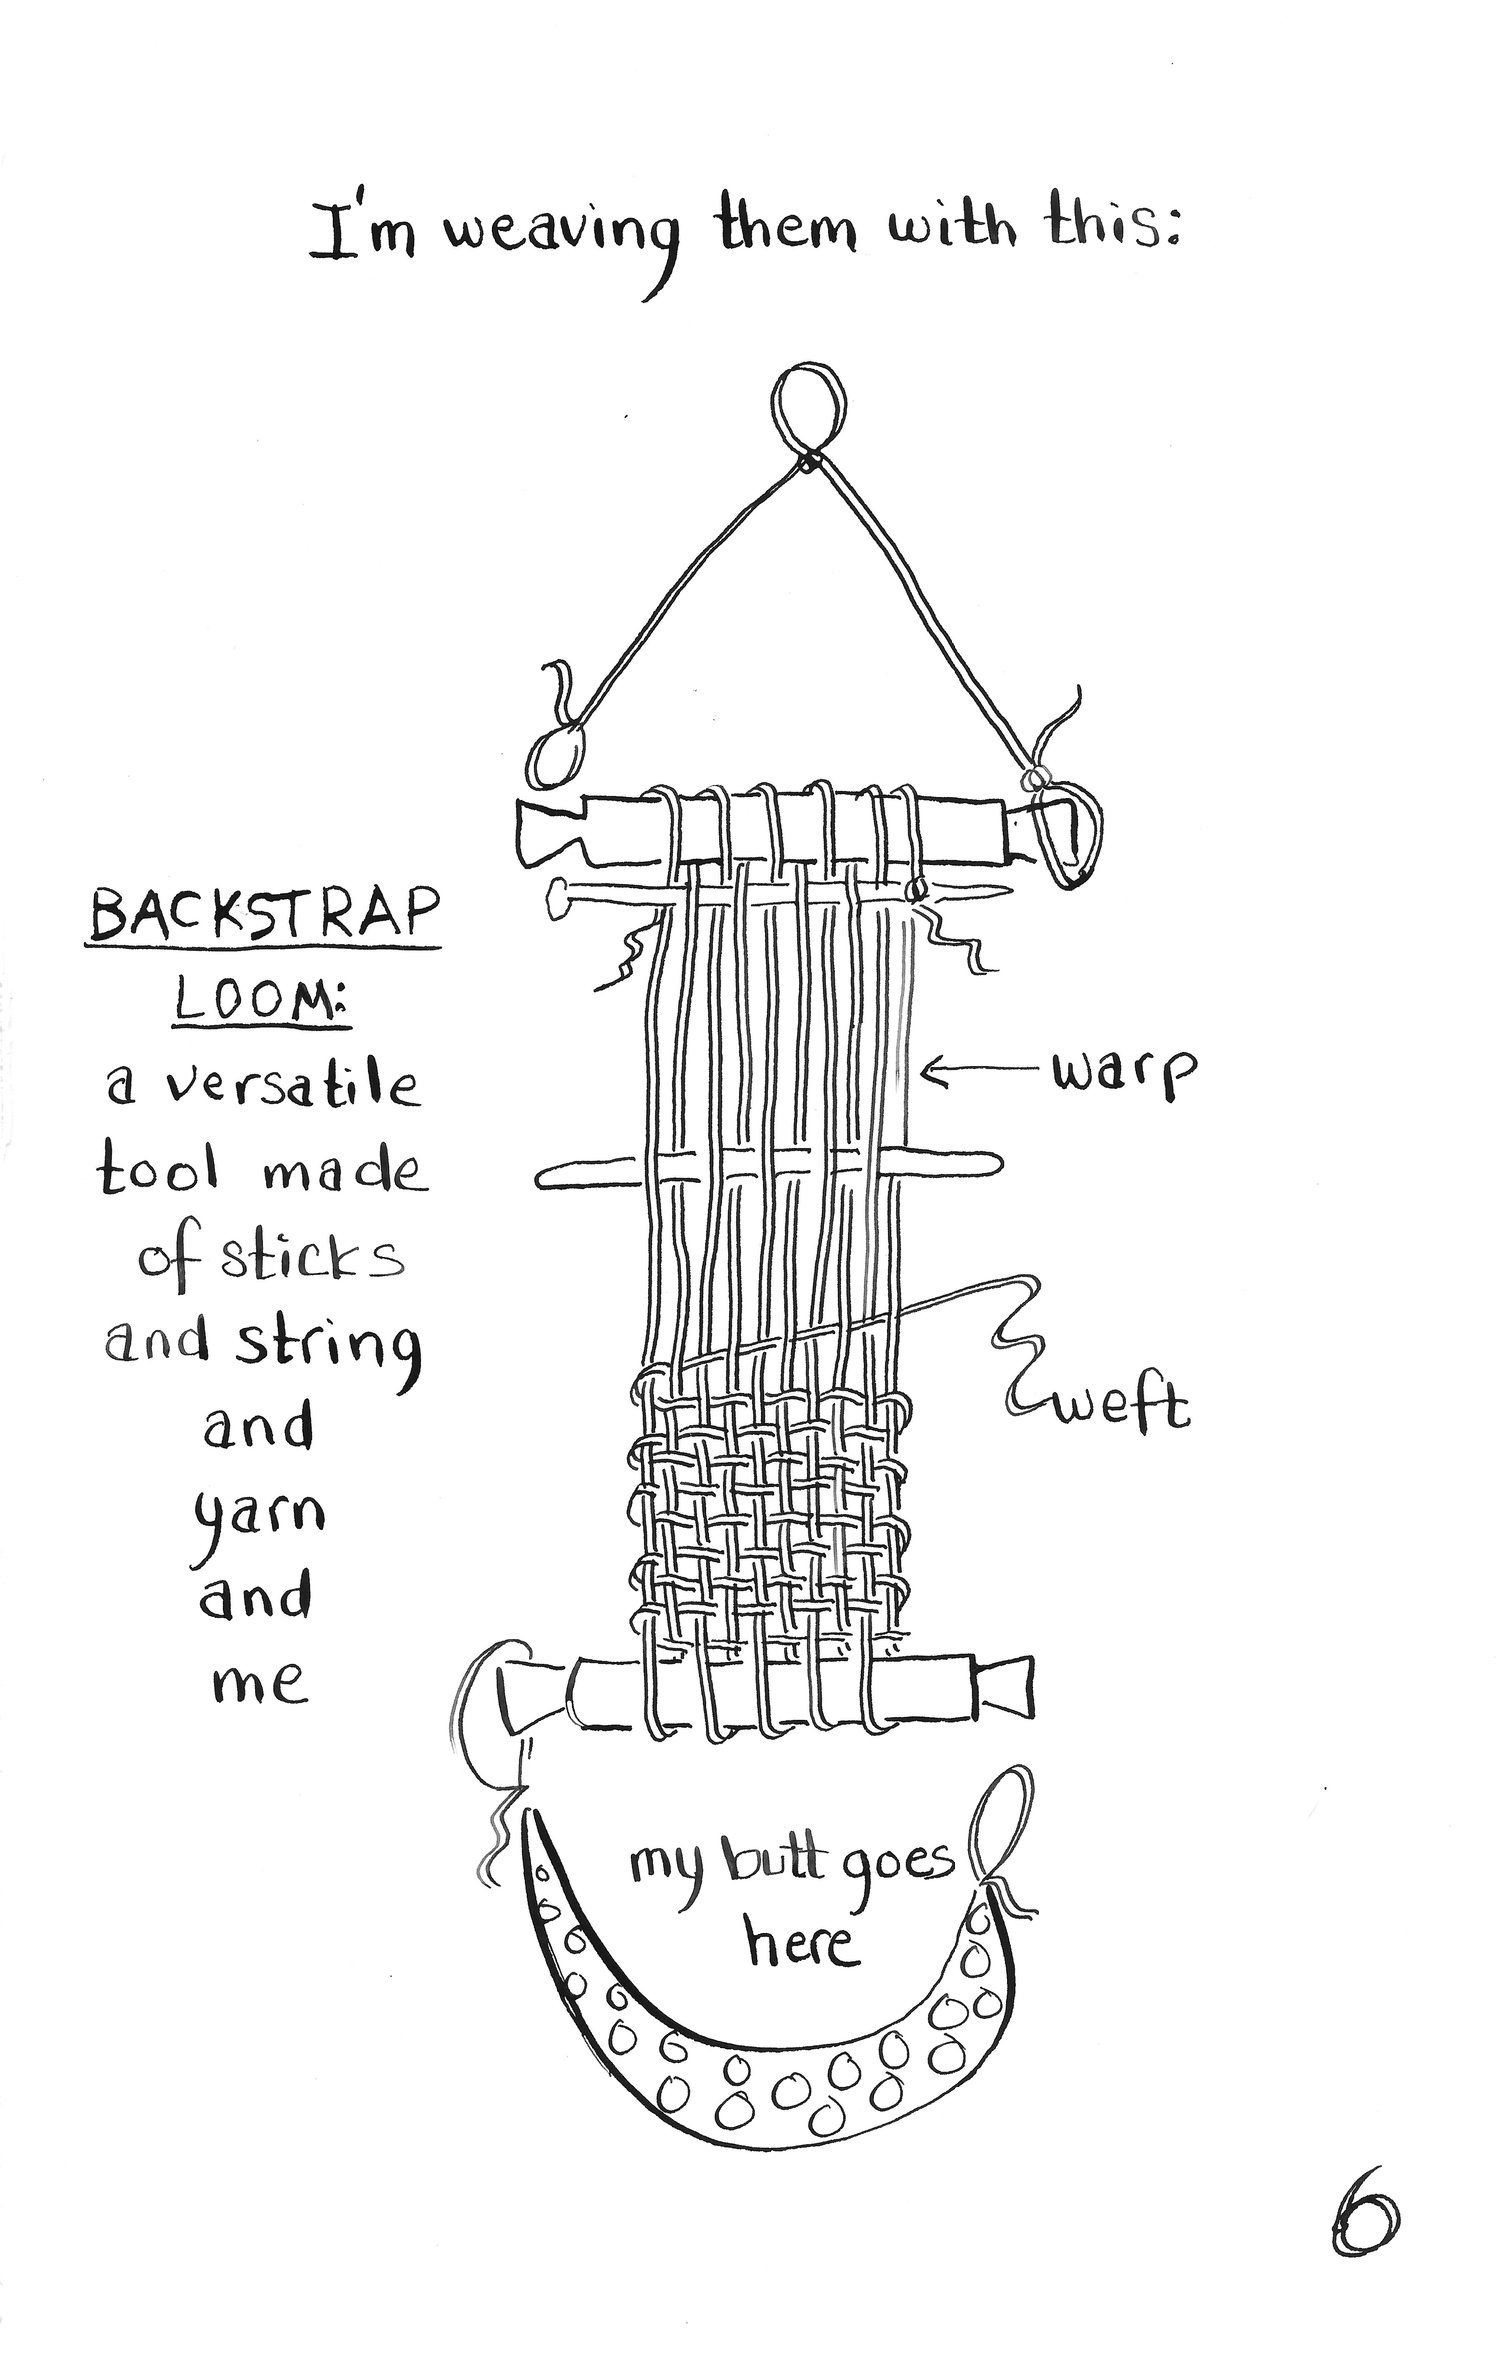 I'm weaving them with this:
BACKSTRAP
LOOM:
a versatile
tool made
of sticks
and string
and
yarn
and
me
warp
weft
my butt goes
here
6